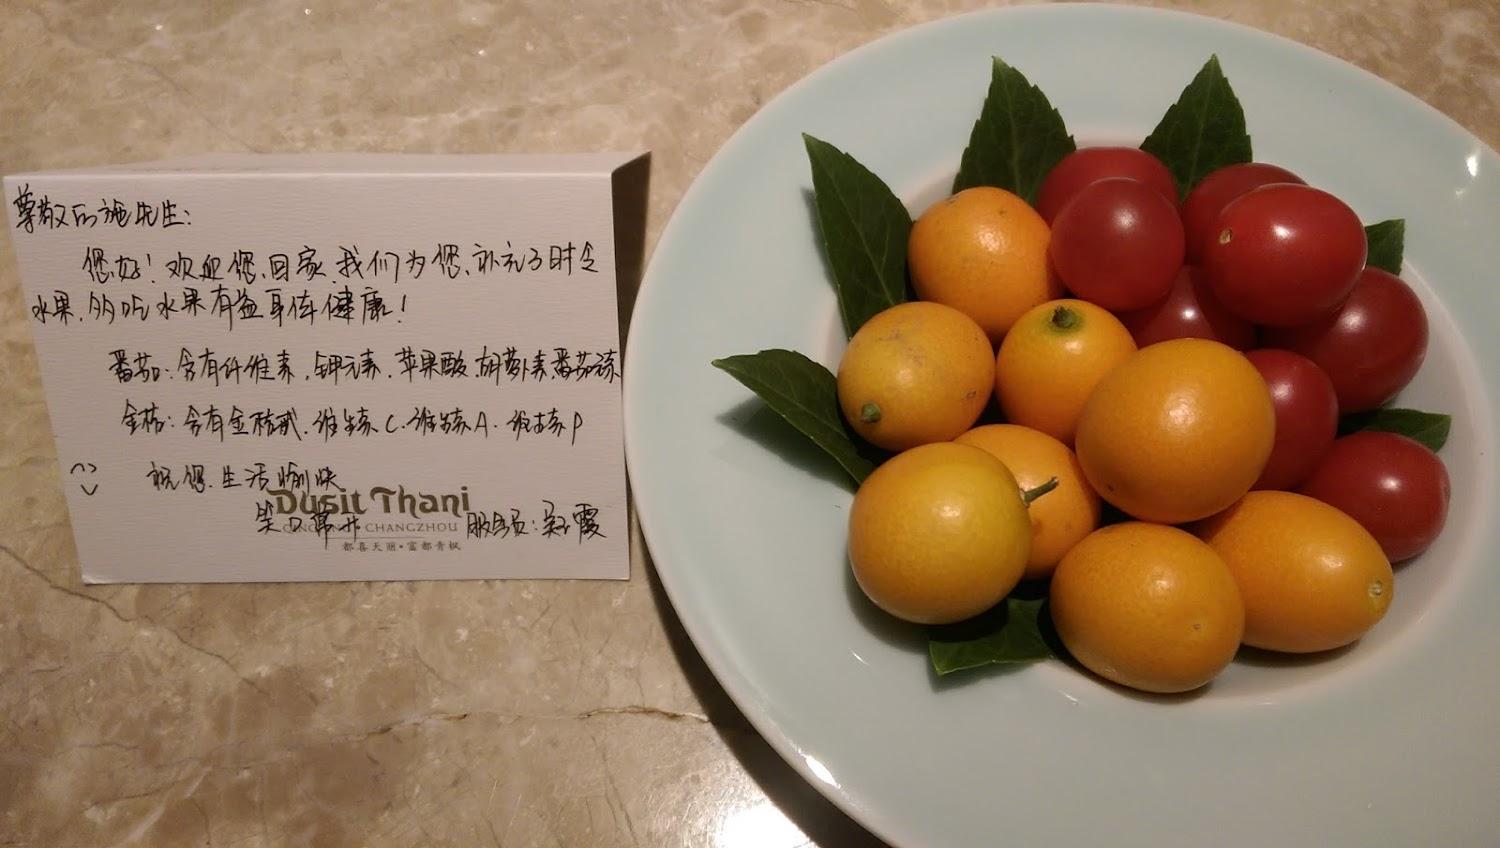 尊敬的施先生:
您好!欢迎您回家,我们为您补充了时令
水果,多吃水果有益身体健康!
番茄:含有纤维素、钾元素、苹果酸、胡萝卜素、番茄素
金桔:含有金桔甙、维生素C、维生素A、维生素P
祝您生活愉快
Dusit Thani
笑口常开 服务员:吴霞
CHANGZHOU
都喜天丽·富都青枫